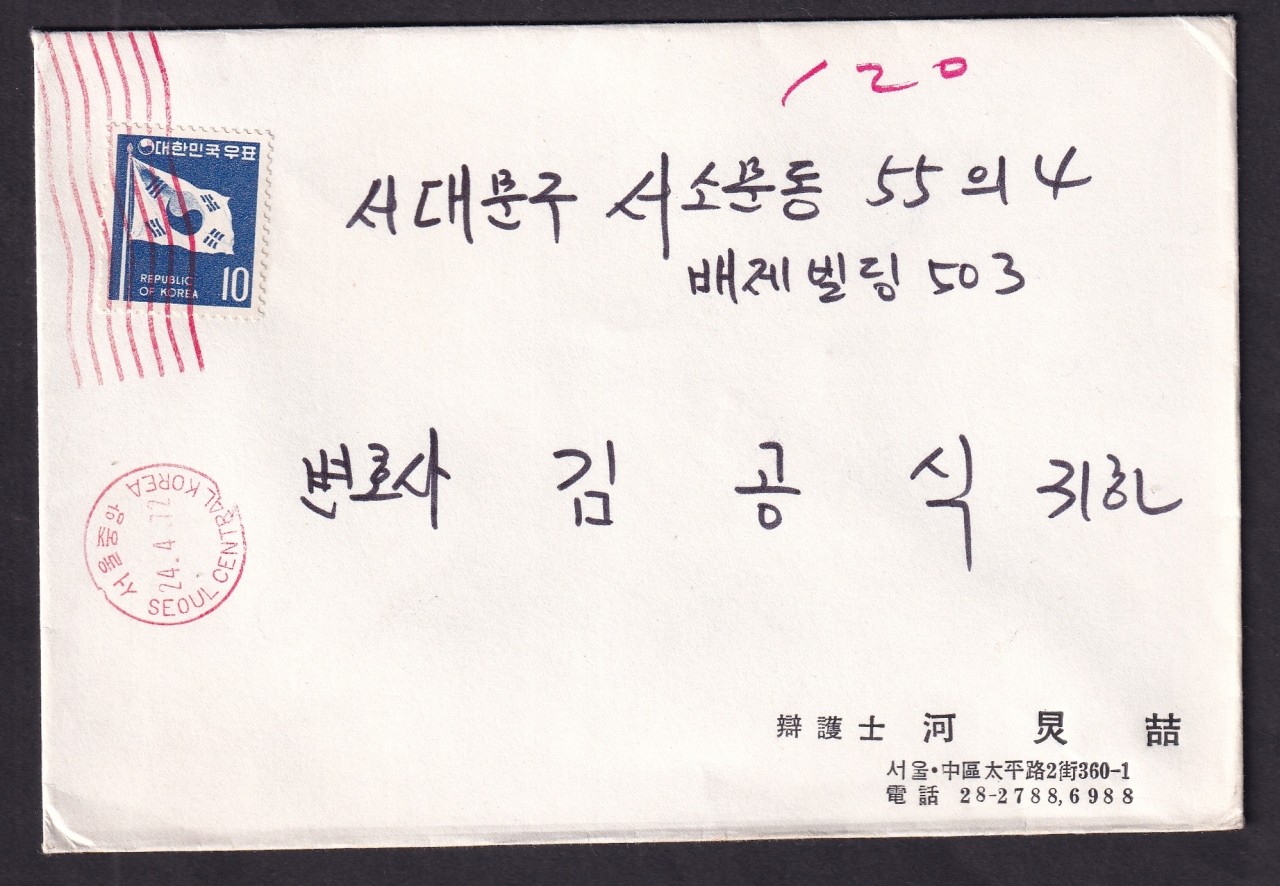 120
대한민국우표
REPUBLIC
OF KOREA
10
서대문구 서소문동 55의4
배제빌딩 503
변호사 김공식 귀하
SEOUL CENTRAL KOREA
서울중앙
24.4.72
辯護士 河炅喆
서울·中區太平路2街360-1
電話 28-2788,6988